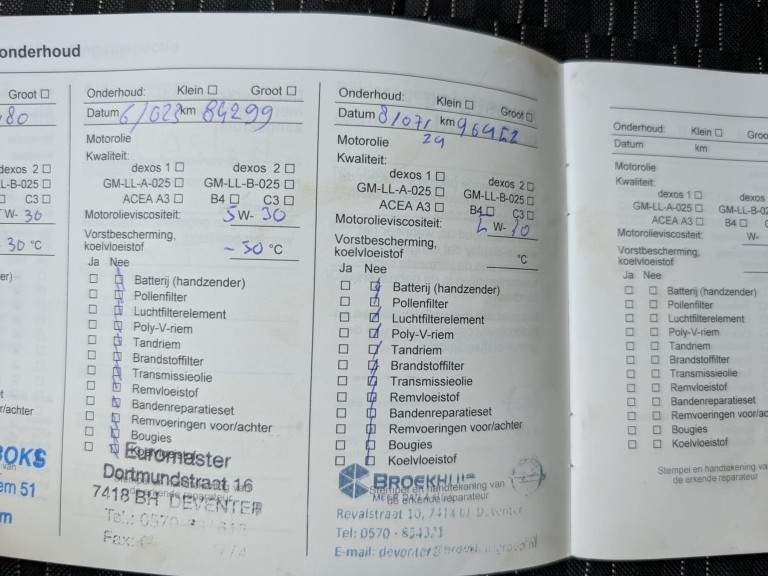 onderhoud
Groot
80
dexos 2
LL-B-025
C3
W- 30
30 °C
er)
r/achter
BOKS
van
em 51
m
Onderhoud: Klein Groot
Datum 6/023 km 84299
Motorolie
Kwaliteit:
dexos 1 dexos 2
GM-LL-A-025 GM-LL-B-025
ACEA A3 B4 C3
Motorolieviscositeit: 5 W- 30
Vorstbescherming,
koelvloeistof - 50 °C
Ja Nee
Batterij (handzender)
Pollenfilter
Luchtfilterelement
Poly-V-riem
Tandriem
Brandstoffilter
Transmissieolie
Remvloeistof
Bandenreparatieset
Remvoeringen voor/achter
Bougies
Euromaster
Dortmundstraat 16
7418 BH DEVENTER
Tel.: 0570
Fax:
Onderhoud: Klein Groot
Datum 8/07/ km
24
Motorolie
Kwaliteit:
dexos 1 dexos 2
GM-LL-A-025 GM-LL-B-025
ACEA A3 B4 C3
Motorolieviscositeit: W-
Vorstbescherming,
koelvloeistof °C
Ja Nee
Batterij (handzender)
Pollenfilter
Luchtfilterelement
Poly-V-riem
Tandriem
Brandstoffilter
Transmissieolie
Remvloeistof
Bandenreparatieset
Remvoeringen voor/achter
Bougies
Koelvloeistof
BROEKHUIS
Stempel en handtekening van
de erkende reparateur
Revalstraat 10, Deventer
Tel: 0570 -
E-mail:
Onderhoud: Klein Groo
Datum km
Motorolie
Kwaliteit:
dexos 1 dexos 2
GM-LL-A-025 GM-LL-B-02
ACEA A3 B4 C
Motorolieviscositeit: W-
Vorstbescherming,
koelvloeistof
Ja Nee
Batterij (handzender)
Pollenfilter
Luchtfilterelement
Poly-V-riem
Tandriem
Brandstoffilter
Transmissieolie
Remvloeistof
Bandenreparatieset
Remvoeringen voor/ac
Bougies
Koelvloeistof
Stempel en handtekening v
de erkende reparateur